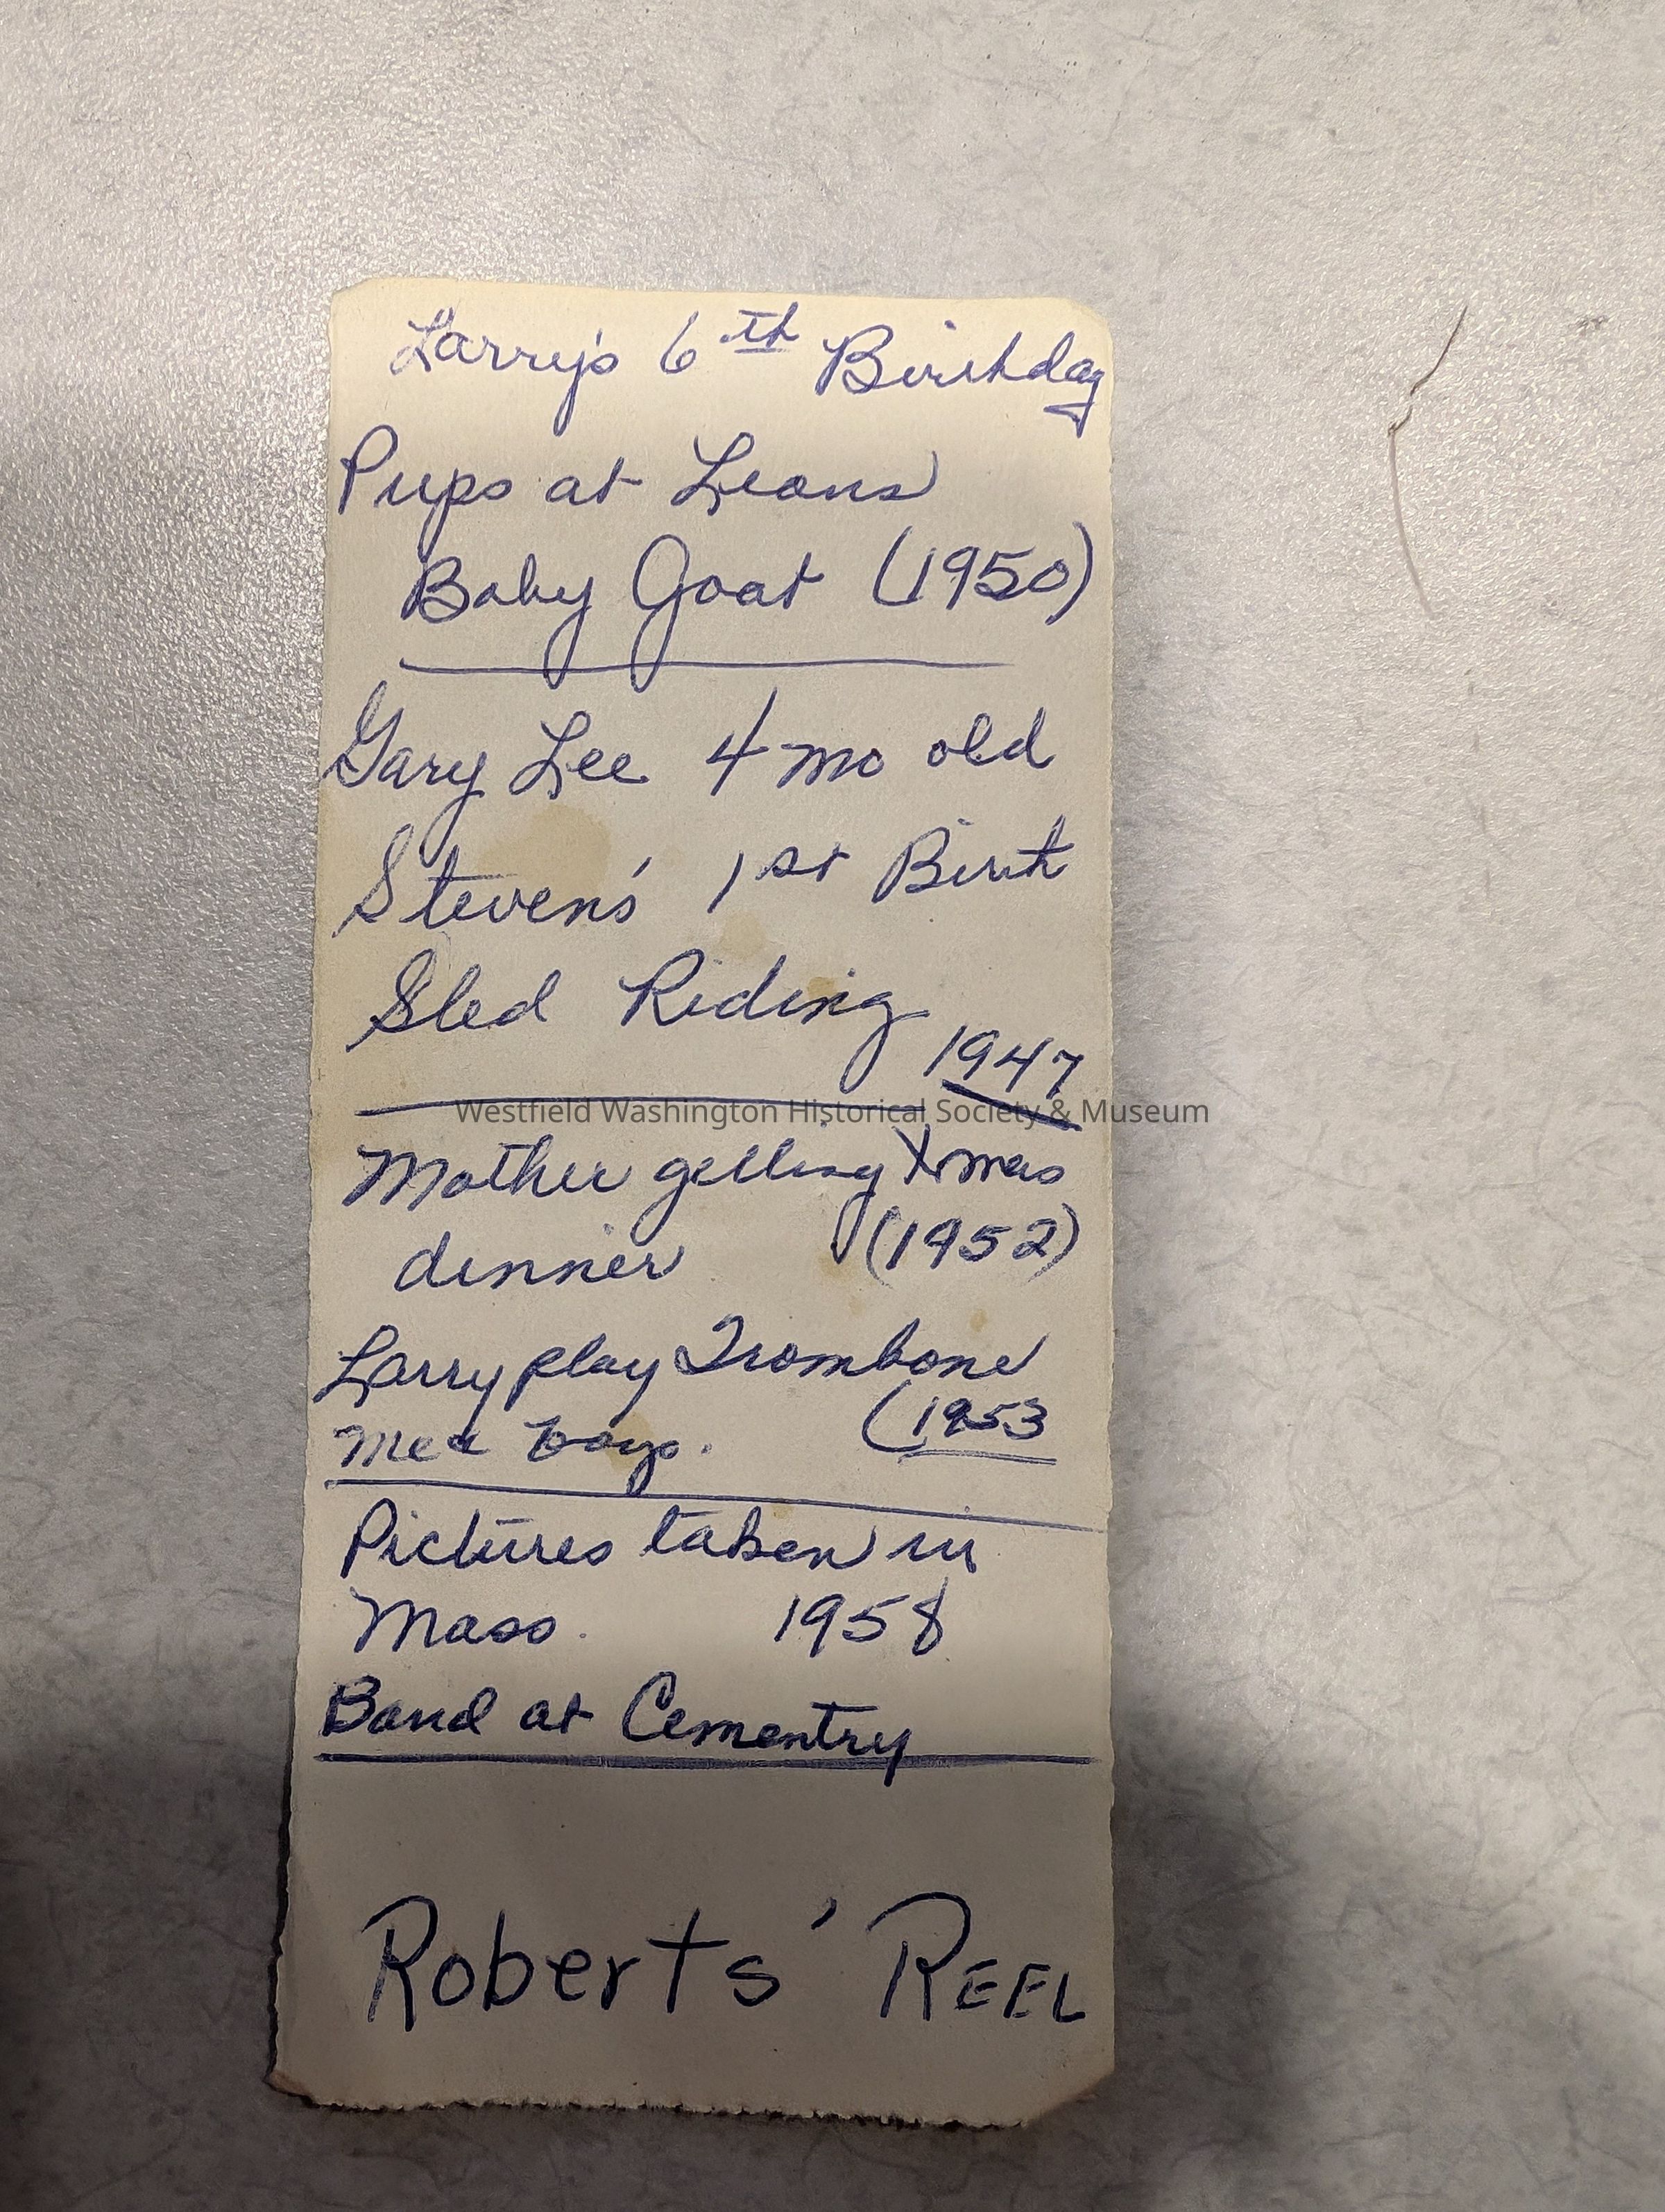 Larry's 6th Birthday
Pups at Leons
Baby Goat (1950)
Gary Lee 4 mo old
Steven's 1st Birth
Sled Riding
1947
Westfield Washington Historical Society & Museum
Mother getting Xmas
dinner (1952)
Larry play Trombone
Me & boys. (1953
Pictures taken in
Mass. 1958
Band at Cementry
Roberts' REEL